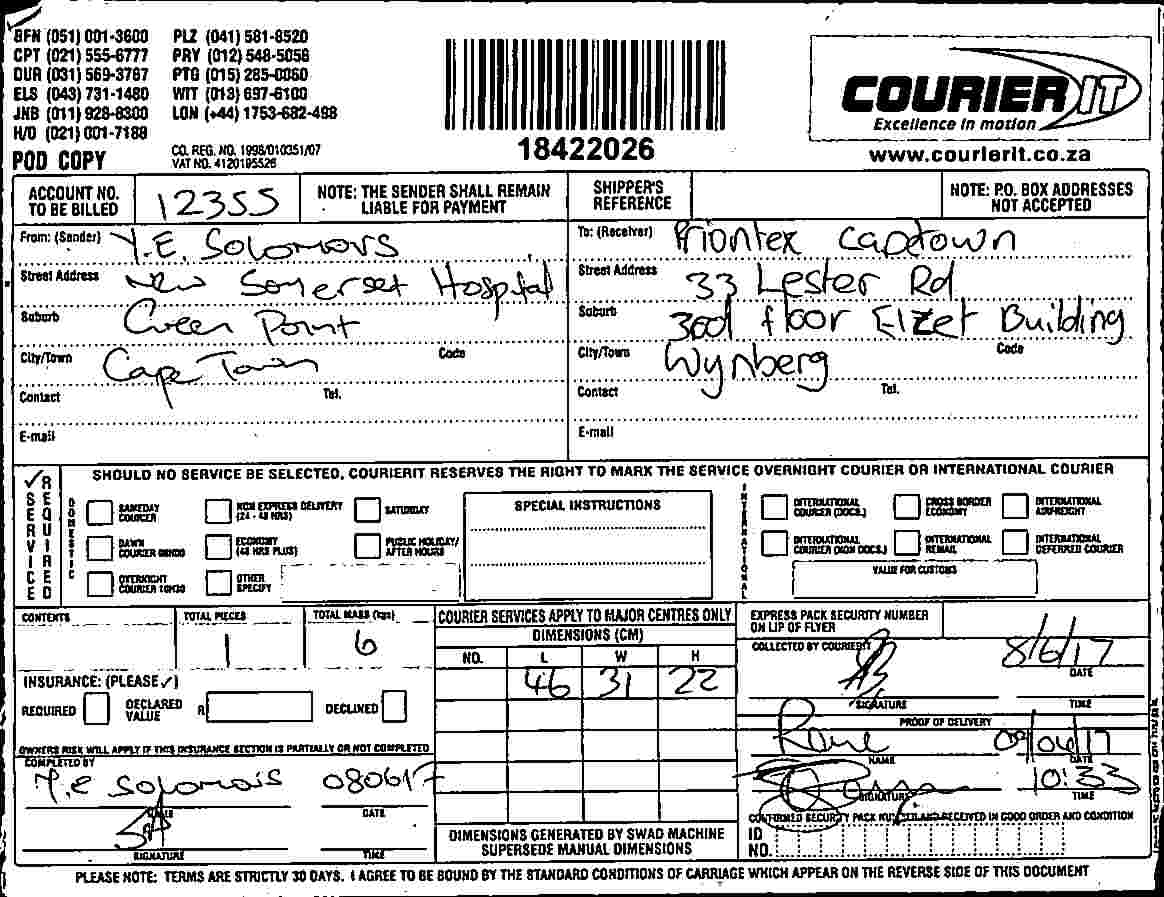 BFN (051) 001-3600 PLZ (041) 581-8520
CPT (021) 555-6777 PRY (012) 548-5058
DUR (031) 569-3767 PTG (015) 285-0060
ELS (043) 731-1480 WIT (013) 697-6100
JNB (011) 928-8300 LON (+44) 1753-682-498
H/O (021) 001-7188
POD COPY
CO. REG. NO. 1998/010351/07
VAT NO. 4120195526
18422026
COURIER IT
Excellence in motion
www.courierit.co.za
ACCOUNT NO. TO BE BILLED
12355
NOTE: THE SENDER SHALL REMAIN LIABLE FOR PAYMENT
SHIPPER'S REFERENCE
NOTE: P.O. BOX ADDRESSES NOT ACCEPTED
From: (Sender) Y.E. Solomons
Street Address New Somerset Hospital
Suburb Green Point
City/Town Cape Town Code
Contact Tel.
E-mail
To: (Receiver) Priontex Captown
Street Address 33 Lester Rd
Suburb floor Elzet Building
City/Town Wynberg Code
Contact Tel.
E-mail
✓ SERVICE REQUIRED
SHOULD NO SERVICE BE SELECTED, COURIERIT RESERVES THE RIGHT TO MARK THE SERVICE OVERNIGHT COURIER OR INTERNATIONAL COURIER
DOMESTIC
SAMEDAY COURIER
NON EXPRESS DELIVERY (24 - 48 HRS)
SATURDAY
DAWN COURIER 09H00
ECONOMY (48 HRS PLUS)
PUBLIC HOLIDAY/ AFTER HOURS
OVERNIGHT COURIER 10H30
OTHER SPECIFY
SPECIAL INSTRUCTIONS
INTERNATIONAL
INTERNATIONAL COURIER (DOCS.)
CROSS BORDER ECONOMY
INTERNATIONAL AIRFREIGHT
INTERNATIONAL COURIER (NON DOCS.)
INTERNATIONAL REMAIL
INTERNATIONAL DEFERRED COURIER
VALUE FOR CUSTOMS
CONTENTS
TOTAL PIECES
1
TOTAL MASS (kgs)
6
INSURANCE: (PLEASE ✓)
REQUIRED DECLARED VALUE R DECLINED
OWNERS RISK WILL APPLY IF THIS INSURANCE SECTION IS PARTIALLY OR NOT COMPLETED
COMPLETED BY
Y.e solomons 080617
NAME DATE
SIGNATURE TIME
COURIER SERVICES APPLY TO MAJOR CENTRES ONLY
DIMENSIONS (CM)
NO. L W H
46 31 22
DIMENSIONS GENERATED BY SWAD MACHINE SUPERSEDE MANUAL DIMENSIONS
EXPRESS PACK SECURITY NUMBER ON LIP OF FLYER
COLLECTED BY COURIERIT
8/6/17
DATE
SIGNATURE TIME
PROOF OF DELIVERY
09/06/17
NAME DATE
10:33
SIGNATURE TIME
CONFIRMED SECURITY PACK NUMBER AND RECEIVED IN GOOD ORDER AND CONDITION
ID NO.
PLEASE NOTE: TERMS ARE STRICTLY 30 DAYS. I AGREE TO BE BOUND BY THE STANDARD CONDITIONS OF CARRIAGE WHICH APPEAR ON THE REVERSE SIDE OF THIS DOCUMENT